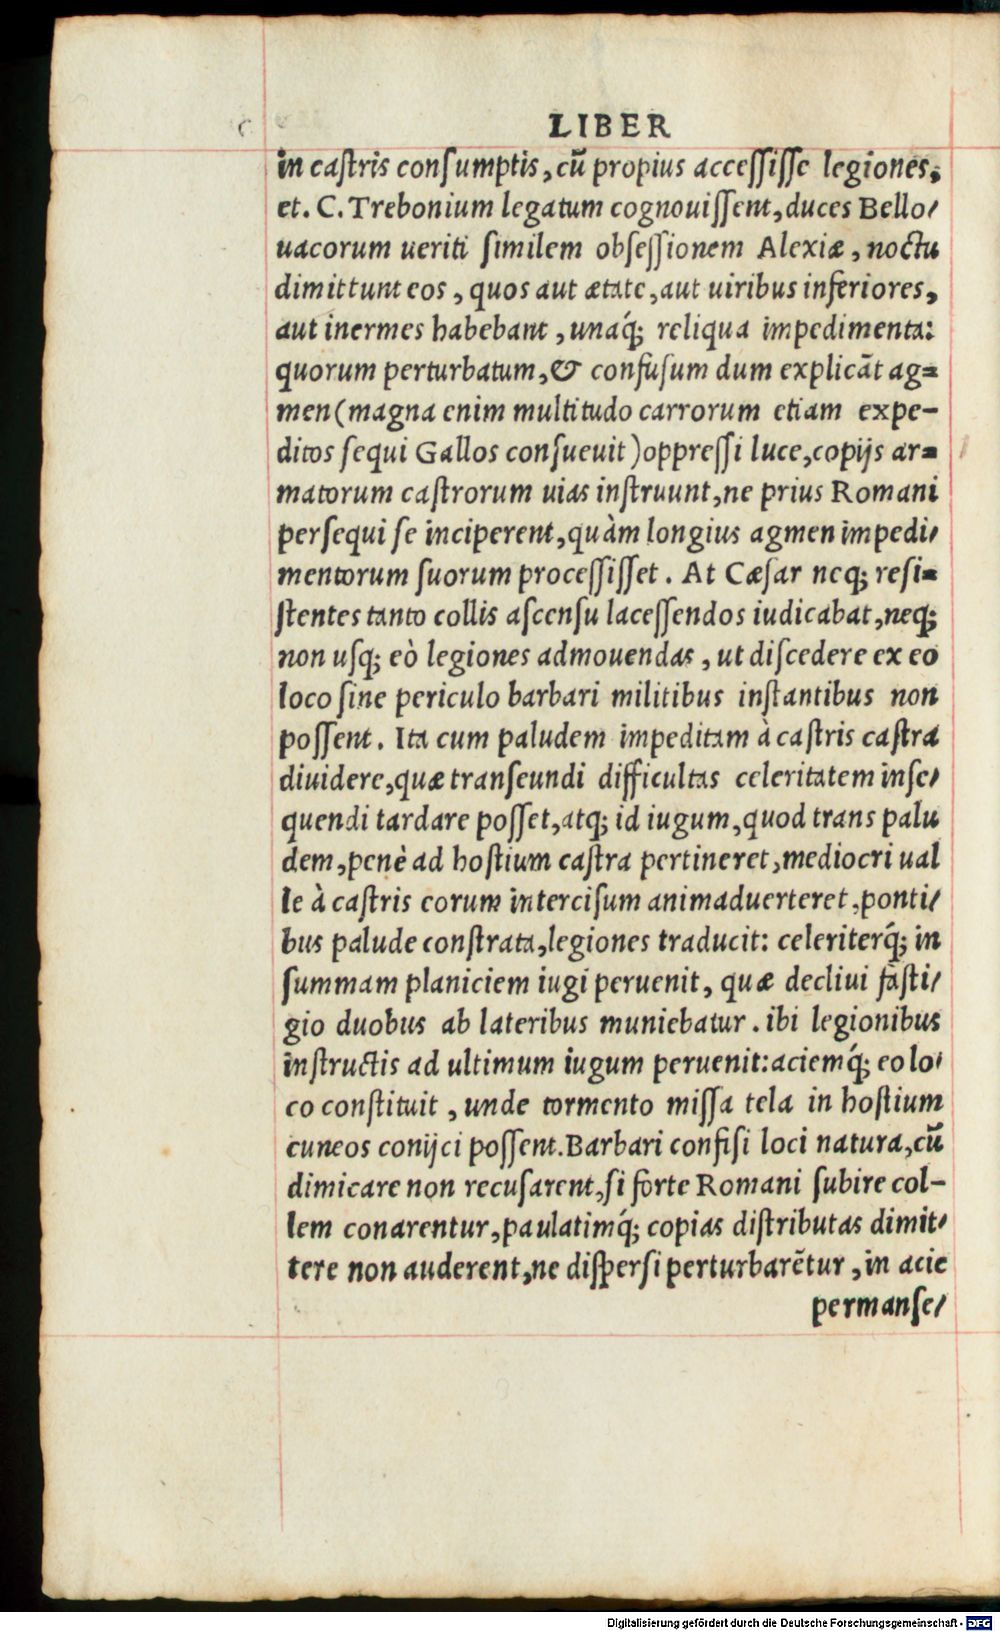 LIBER
in caſtris conſumptis, cū propius acceſſiſſe legiones,
et. C. Trebonium legatum cognouiſſent, duces Bello/
uacorum ueriti ſimilem obſeſſionem Alexiæ, noctu
dimittunt eos, quos aut ætate, aut uiribus inferiores,
aut inermes habebant, unaq́; reliqua impedimenta:
quorum perturbatum, & confuſum dum explicāt ag=
men (magna enim multitudo carrorum etiam expe-
ditos ſequi Gallos conſueuit) oppreſſi luce, copijs ar=
matorum caſtrorum uias inſtruunt, ne prius Romani
perſequi ſe inciperent, quàm longius agmen impedi/
mentorum ſuorum proceſſiſſet. At Cæſar neq; reſi=
ſtentes tanto collis aſcenſu laceſſendos iudicabat, neq;
non uſq; eò legiones admouendas, ut diſcedere ex eo
loco ſine periculo barbari militibus inſtantibus non
poſſent. Ita cum paludem impeditam à caſtris caſtra
diuidere, quæ tranſeundi difficultas celeritatem inſe/
quendi tardare poſſet, atq; id iugum, quod trans palu
dem, penè ad hoſtium caſtra pertineret, mediocri ual
le à caſtris eorum interciſum animaduerteret, ponti/
bus palude conſtrata, legiones traducit: celeriterq́; in
ſummam planiciem iugi peruenit, quæ decliui faſti/
gio duobus ab lateribus muniebatur. ibi legionibus
inſtructis ad ultimum iugum peruenit: aciemq́; eo lo/
co conſtituit, unde tormento miſſa tela in hoſtium
cuneos conijci poſſent. Barbari confiſi loci natura, cū
dimicare non recuſarent, ſi forte Romani ſubire col-
lem conarentur, paulatimq́; copias diſtributas dimit/
tere non auderent, ne diſperſi perturbarētur, in acie
permanſe/
Digitalisierung gefördert durch die Deutsche Forschungsgemeinschaft - DFG